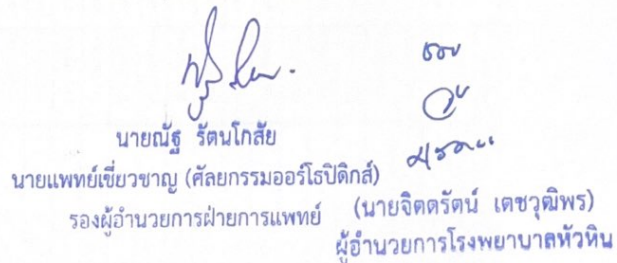 นายณัฐ รัตนโกสัย
นายแพทย์เชี่ยวชาญ (ศัลยกรรมออร์โธปิดิกส์)
รองผู้อำนวยการฝ่ายการแพทย์
(นายจิตตรัตน์ เตชวุฒิพร)
ผู้อำนวยการโรงพยาบาลหัวหิน